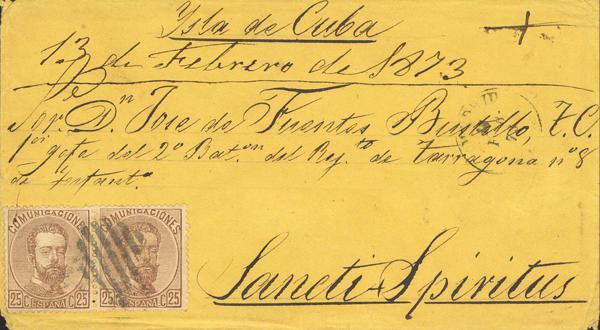 Isla de Cuba
13 de Febrero de 1873
Sor. Dn. Jose de Fuentes, Bustillo, T. C.
1er gefe del 2º Baton. del Reyto. de Tarragona nº 8
de Infanta.
COMUNICACIONES COMUNICACIONES
25 C ESPAÑA C 25 25 C ESPAÑA C 25
Sancti-Spiritus